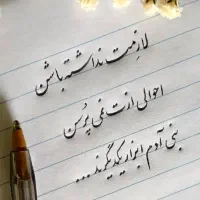 لازمت نداشته باشن
احوالی ازت نمی پرسن
بنی آدم ابزار یکدیگرند...